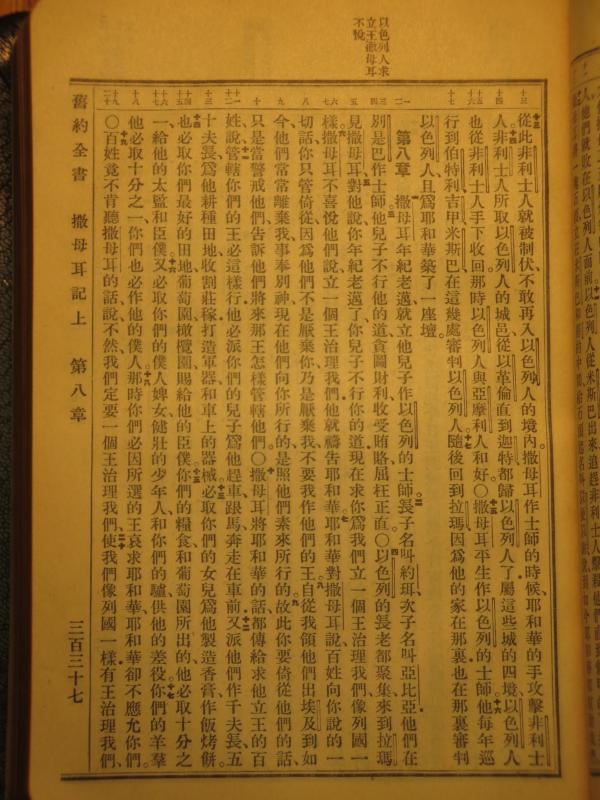 以色列人求
立王撒母耳
不悅
人、他們就敗在以色列人面前。以色列人從米斯巴出來、追趕非利士人、擊殺他們、直到
十三
從此非利士人就被制伏、不敢再入以色列人的境內、撒母耳作士師的時候、耶和華的手攻擊非利士
十四
人。非利士人所取以色列人的城邑、從以革倫直到迦特、都歸以色列人了、屬這些城的四境、以色列人
十五 十六
也從非利士人手下收回、那時以色列人與亞摩利人和好。○撒母耳平生作以色列的士師。他每年巡
十七
行到伯特利、吉甲、米斯巴、在這幾處審判以色列人。隨後回到拉瑪、因為他的家在那裏、也在那裏審判
以色列人、且為耶和華築了一座壇。
一 二
第八章 撒母耳年紀老邁、就立他兒子作以色列的士師。長子名叫約珥、次子名叫亞比亞、他們在
三 四
別是巴作士師。他兒子不行他的道、貪圖財利、收受賄賂、屈枉正直。○以色列的長老都聚集、來到拉瑪
五
見撒母耳、對他說、你年紀老邁了、你兒子不行你的道、現在求你為我們立一個王治理我們、像列國一
六 七
樣。撒母耳不喜悅他們說、立一個王治理我們、他就禱告耶和華。耶和華對撒母耳說、百姓向你說的一
八
切話、你只管依從、因為他們不是厭棄你、乃是厭棄我、不要我作他們的王。自從我領他們出埃及到如
九
今、他們常常離棄我、事奉別神、現在他們向你所行的、是照他們素來所行的。故此你要依從他們的話、
十
只是當警戒他們、告訴他們將來那王怎樣管轄他們。○撒母耳將耶和華的話、都傳給求他立王的百
十一 十二
姓、說、管轄你們的王必這樣行、他必派你們的兒子為他趕車、跟馬、奔走在車前。又派他們作千夫長、五
十三
十夫長、為他耕種田地、收割莊稼、打造軍器和車上的器械。必取你們的女兒為他製造香膏、作飯烤餅。
十四 十五
也必取你們最好的田地、葡萄園、橄欖園、賜給他的臣僕。你們的糧食、和葡萄園所出的、他必取十分之
十六 十七
一、給他的太監和臣僕。又必取你們的僕人婢女、健壯的少年人、和你們的驢、供他的差役。你們的羊羣
十八
他必取十分之一、你們也必作他的僕人。那時你們必因所選的王哀求耶和華、耶和華卻不應允你們。
十九 二十
○百姓竟不肯聽撒母耳的話、說、不然、我們定要一個王治理我們。使我們像列國一樣、有王治理我們、
舊約全書 撒母耳記上 第八章 三百三十七